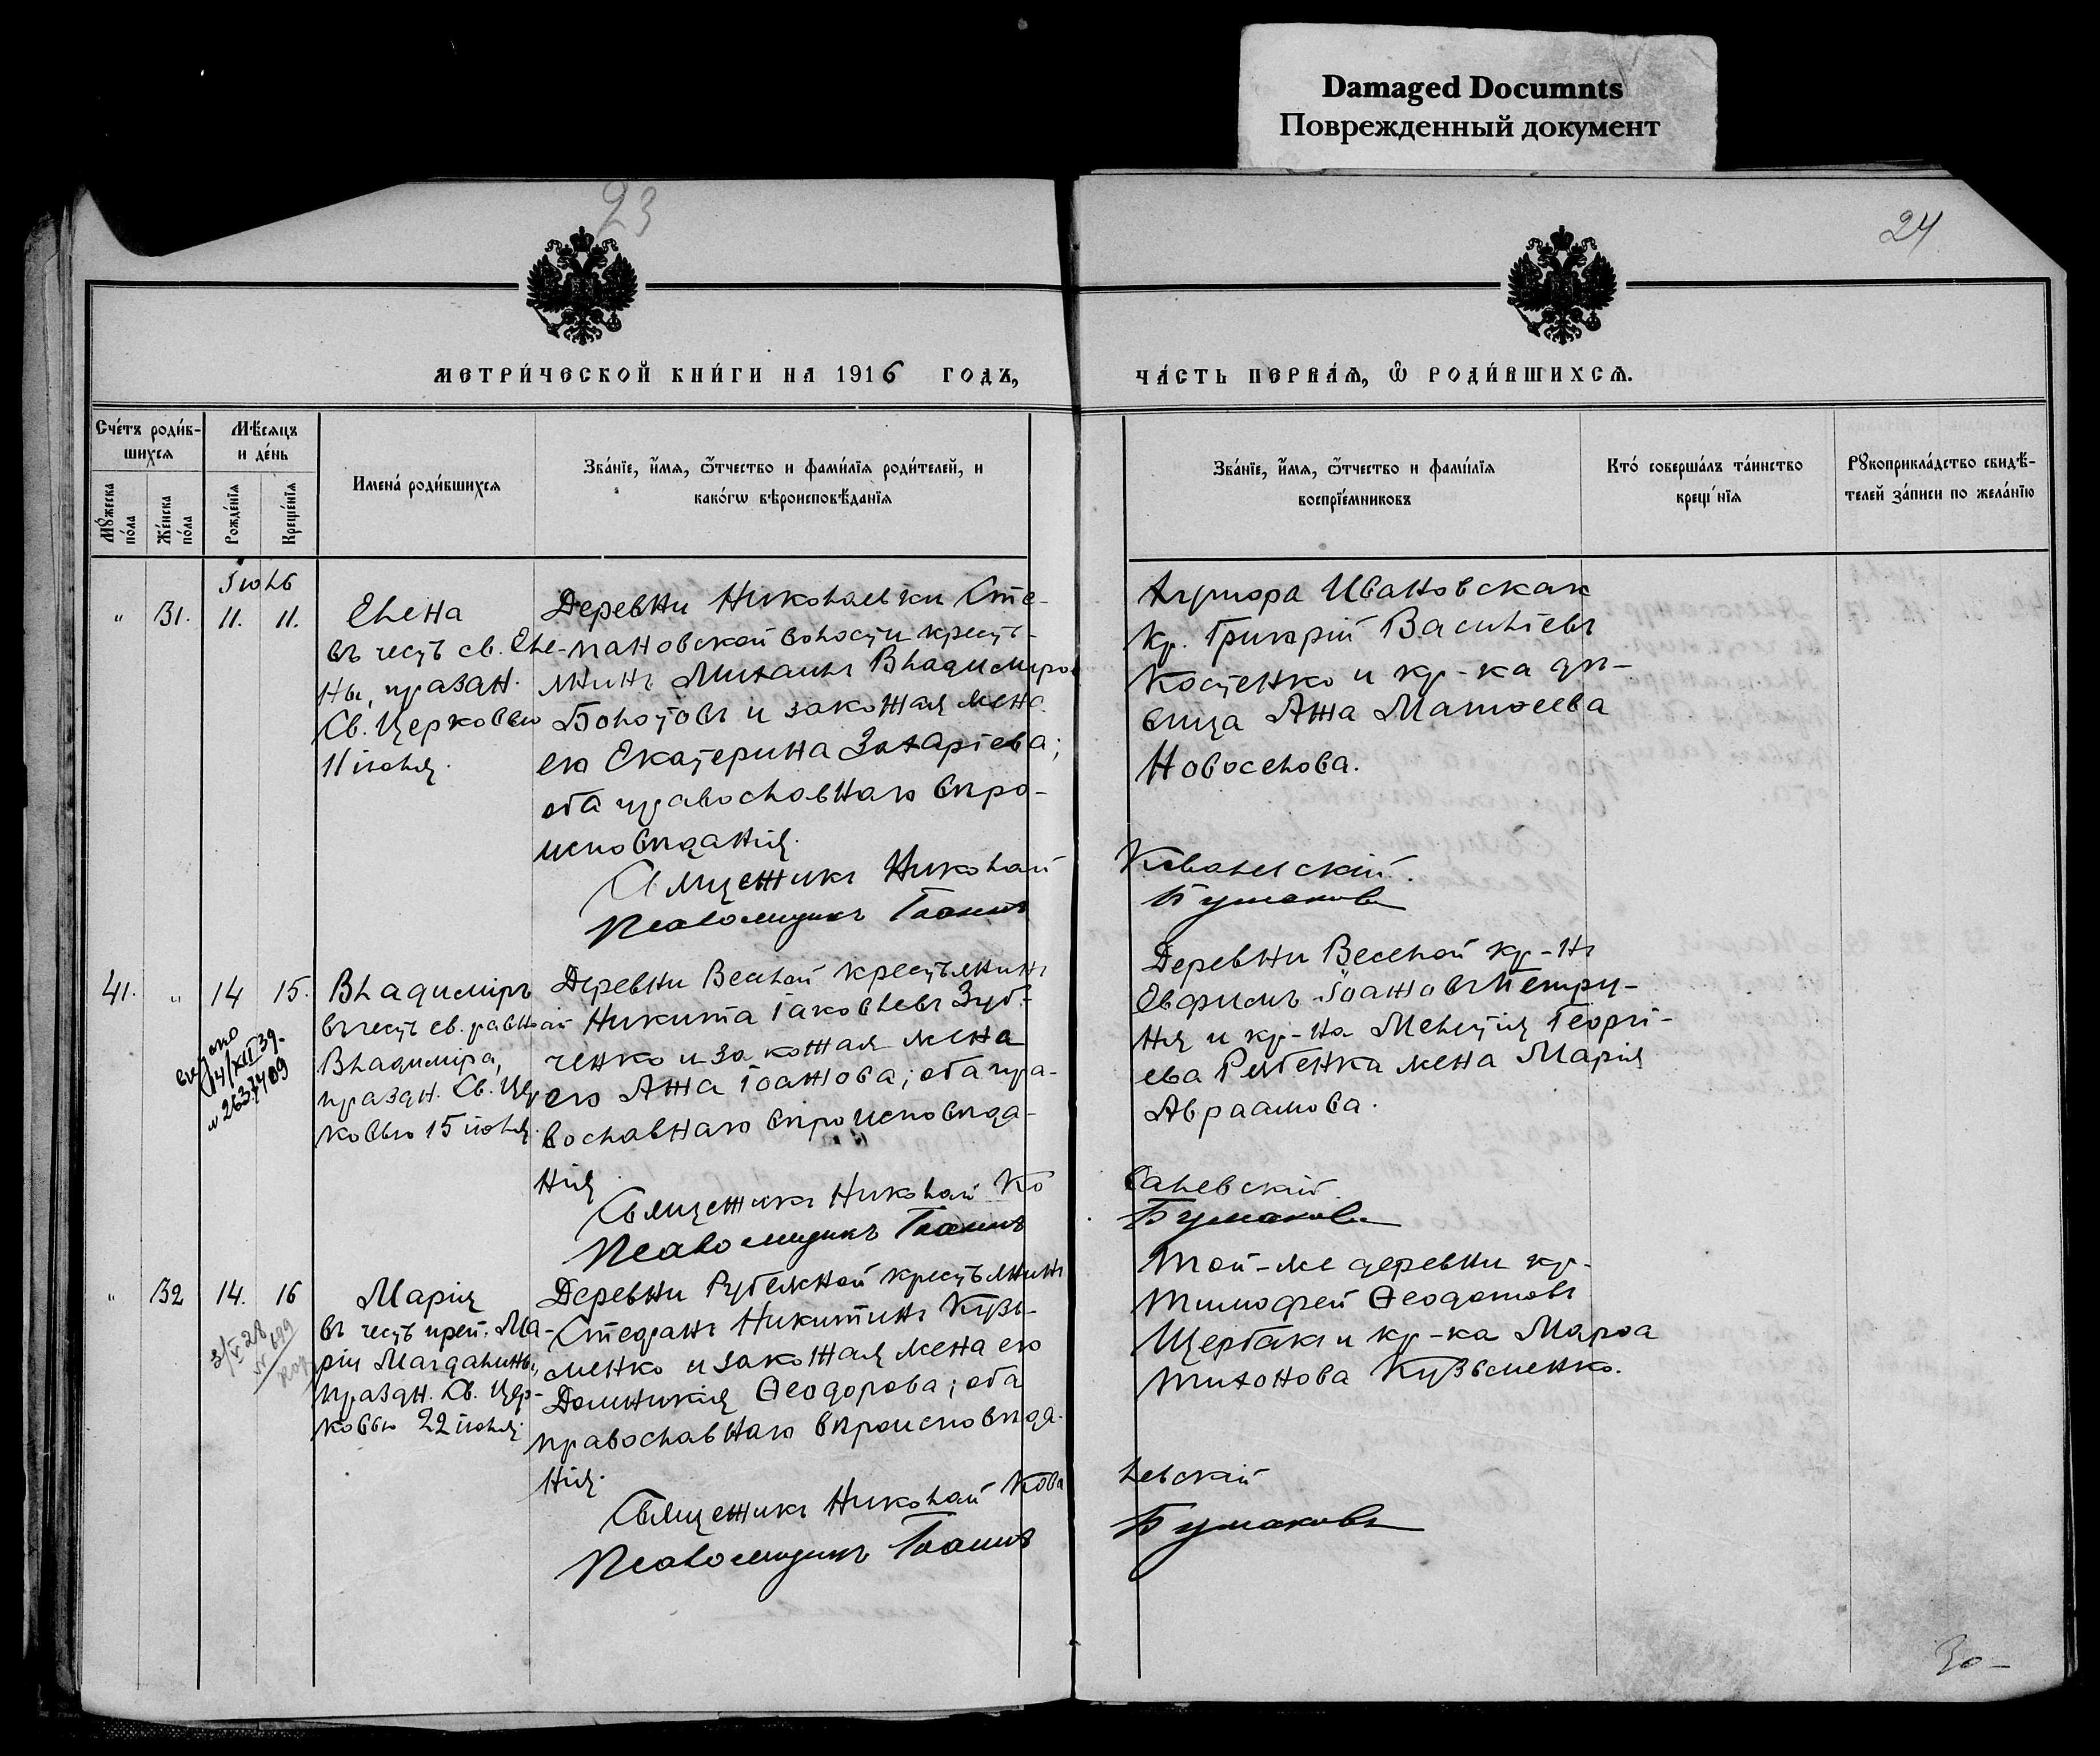 Damaged Documnts
Поврежденный документ
23
24
МЕТРИ́ЧЕСКОЙ КНИ́ГИ НА 1916 ГОДЪ,
ЧА́СТЬ ПЕРВА́Ѧ, Ѽ РОДИ́ВШИХСѦ.
Сче́тъ роди́в-
шихсѧ
Мѣ́сѧцъ
и де́нь
Мꙋ́жеска
по́ла
Же́нска
по́ла
Рожде́нїѧ
Креще́нїѧ
Имена́ роди́вшихсѧ
Зва́нїе, и҆́мѧ, ѻ҆́тчество и фами́лїѧ роди́телей, и
како́гѡ вѣроисповѣ́данїѧ
Зва́нїе, и҆́мѧ, ѻ҆́тчество и фами́лїѧ
воспрїе́мниковъ
Кто́ соверша́лъ та́инство
креще́нїѧ
Рꙋкоприкла́дство свидѣ́-
телей за́писи по жела́нїю
Іюль
" 31. 11. 11.
Елена
въ честь св. Еле-
ны, празан.
Св. Церковью
11 іюля.
Деревни Николаевки Сте-
пановской волости кресть-
янинъ Михаилъ Владимиров
Болотовъ и законная жена
его Екатерина Захаріева;
оба православнаго вѣро-
исповѣданія.
Священникъ Николай
Псаломщикъ Іоаннъ
Хутора Ивановскаго
кр. Григорій Васильевъ
Костенко и кр-ка дѣ-
вица Анна Матѳеева
Новоселова.
Ковалевскій.
Бушаковъ
41. " 14 15.
Владиміръ
въ честь св. равноап
Владиміра,
праздн. Св. Цер
ковью 15 іюля.
14/XII 39.
№ 2637409
Деревни Веселой крестьянинъ
Никита Іаковлевъ Зуб-
ченко и законная жена
его Анна Іоаннова; оба пра-
вославнаго вѣроисповѣда-
нія
Священникъ Николай Ко
Псаломщикъ Іоаннъ
Деревни Веселой кр-нъ
Евфимъ Іоанновъ Петру-
ня и кр-на Мелетія Георгі-
ева Рябенка жена Марія
Авраамова.
валевскій.
Бушаковъ
" 32 14. 16
Марія
въ честь преп. Ма-
ріи Магдалины,
праздн. Св. Цер-
ковью 22 іюля.
Деревни Рубежной крестьянинъ
Стефанъ Никитинъ Кузь-
менко и законная жена его
Домникія Ѳеодорова; оба
православнаго вѣроисповѣда-
нія.
Священникъ Николай Кова
Псаломщикъ Іоаннъ
Той-же деревни кр-
Тимофей Ѳеодотовъ
Щербакъ и кр-ка Марѳа
Тихонова Кузьменко.
левскій
Бушаковъ
30-